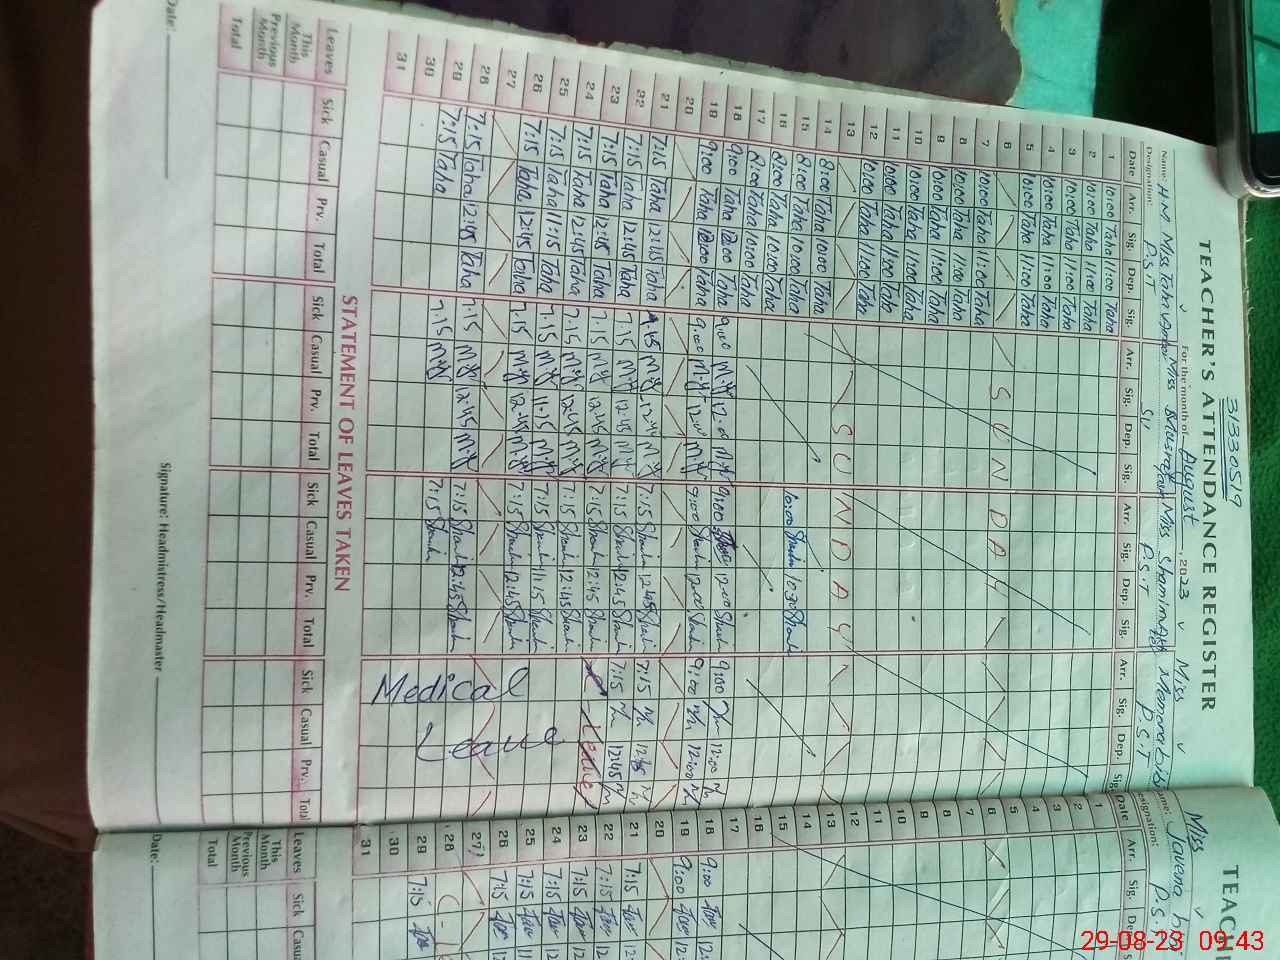 31330519
TEACHER'S ATTENDANCE REGISTER
For the month of August, 2023
Name: H.M Miss Taha Miss Miss Shamim Miss
Designation: P.S.T P.S.T P.S.T
Date Arr. Sig. Dep. Sig. Arr. Sig. Dep. Sig. Arr. Sig. Dep. Sig. Arr. Sig. Dep. Sig.
1 10:00 Taha 11:00 Taha
2 10:00 Taha 11:00 Taha
3 10:00 Taha 11:00 Taha
4 10:00 Taha 11:00 Taha
5 10:00 Taha 11:00 Taha
6 S U N D A Y
7 10:00 Taha 11:00 Taha
8 10:00 Taha 11:00 Taha
9 10:00 Taha 11:00 Taha
10 10:00 Taha 11:00 Taha
11 10:00 Taha 11:00 Taha
12 10:00 Taha 11:00 Taha
13 S U N D A Y
14 8:00 Taha 10:00 Taha
15 8:00 Taha 10:00 Taha 10:00 Shamim 10:30 Shamim
16 8:00 Taha 10:00 Taha
17 8:00 Taha 10:00 Taha
18 9:00 Taha 12:00 Taha 9:00 M.y 12:00 M.y 9:00 12:00 Shamim 9:00 12:00
19 9:00 Taha 12:00 Taha 9:00 M.y 12:00 M.y 9:00 Shamim 12:00 Shamim 9:00 12:00
20
21 7:15 Taha 12:45 Taha M.y 12:45 M.y 7:15 Shamim 12:45 Shamim 7:15 12:45
22 7:15 Taha 12:45 Taha 7:15 M.y 12:45 M.y 7:15 Shamim 12:45 Shamim 7:15 12:45
23 7:15 Taha 12:45 Taha 7:15 M.y 12:45 M.y 7:15 Shamim 12:45 Shamim Leave
24 7:15 Taha 12:45 Taha 7:15 M.y 12:45 M.y 7:15 Shamim 12:45 Shamim
25 7:15 Taha 11:15 Taha 7:15 M.y 11:15 M.y 7:15 Shamim 11:15 Shamim
26 7:15 Taha 12:45 Taha 7:15 M.y 12:45 M.y 7:15 Shamim 12:45 Shamim
27
28 7:15 Taha 12:45 Taha 7:15 M.y 12:45 M.y 7:15 Shamim 12:45 Shamim
29 7:15 Taha 7:15 M.y 7:15 Shamim
30
31
Medical
Leave
STATEMENT OF LEAVES TAKEN
Leaves Sick Casual Prv. Total Sick Casual Prv. Total Sick Casual Prv. Total Sick Casual Prv. Total
This Month
Previous Month
Total
Date: Signature: Headmistress/Headmaster
TEACH
Miss
Javena
Designation: P.S.
Date Arr. Sig.
1
2
3
4
5
6
7
8
9
10
11
12
13
14
15
16
17
18 9:00
19 9:00
20
21 7:15
22 7:15
23 7:15
24 7:15
25 7:15
26 7:15
27
28
29 7:15
30
31
Leaves Sick
This Month
Previous Month
Total
Date:
29-08-23 09:43